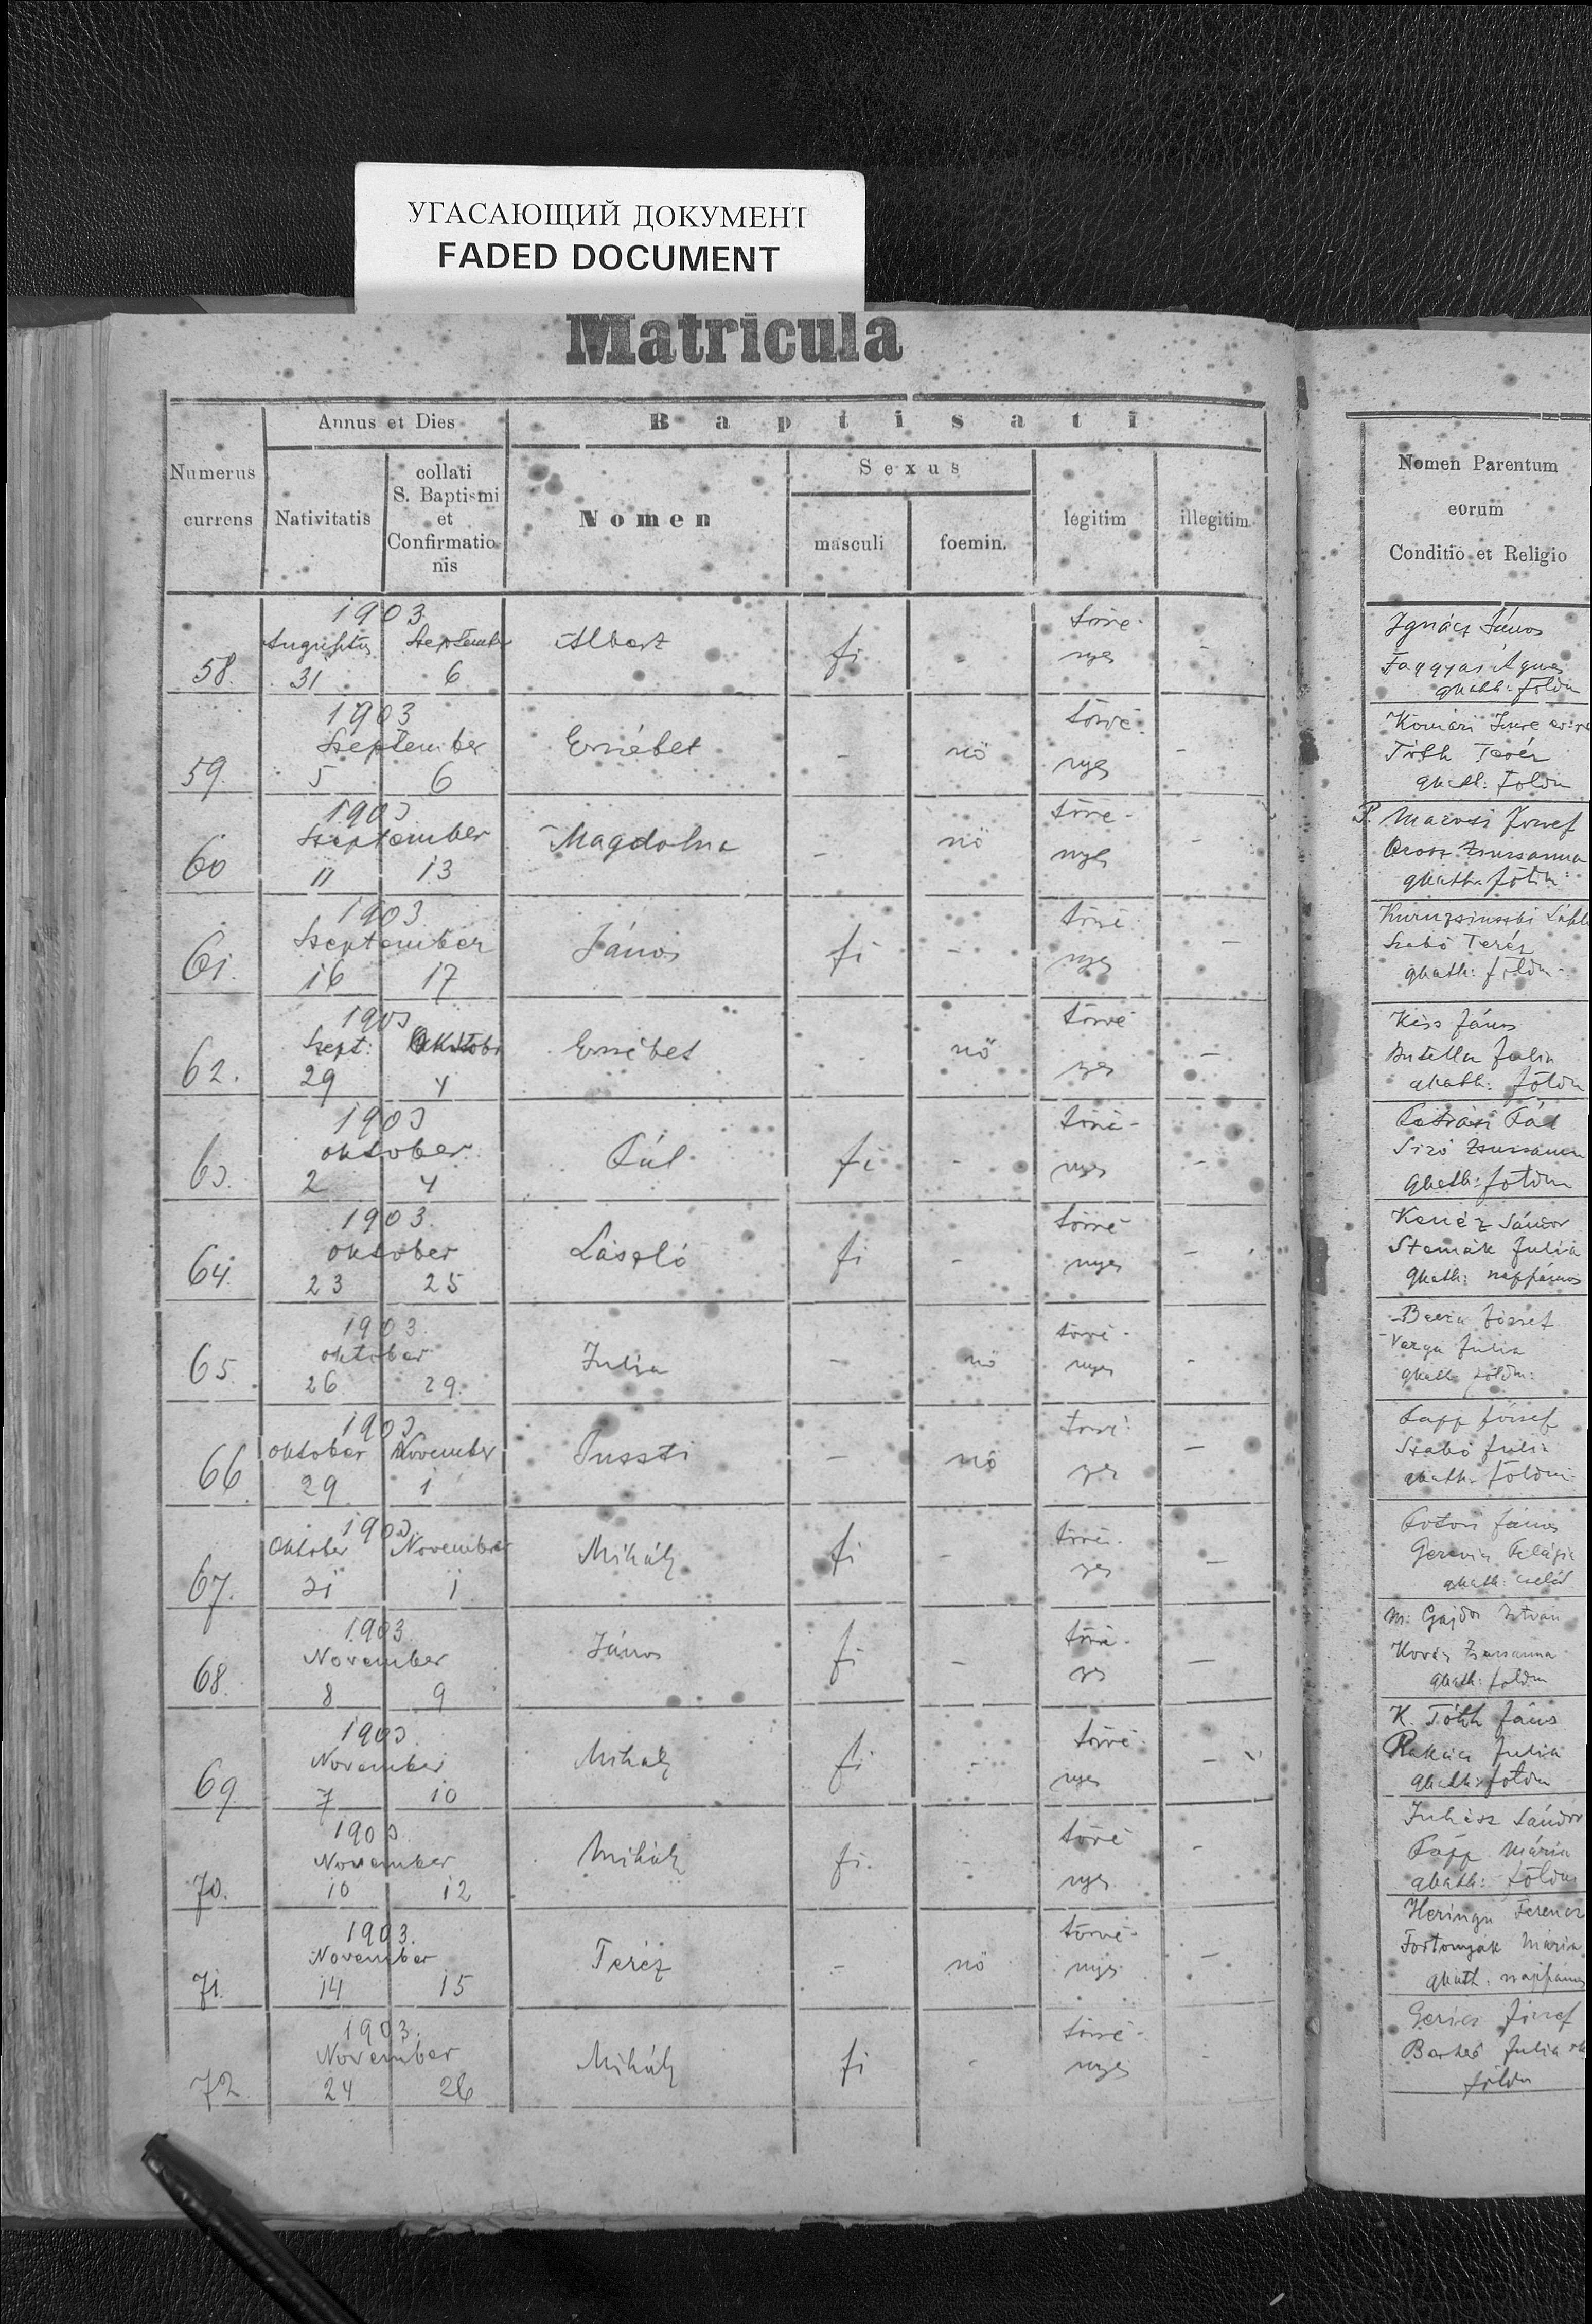 УГАСАЮЩИЙ ДОКУМЕНТ
FADED DOCUMENT
Matricula
Numerus currens
Annus et Dies
Nativitatis
collati S. Baptismi et Confirmationis
Baptisati
Nomen
Sexus
masculi
foemin.
legitim
illegitim
Nomen Parentum
eorum
Conditio et Religio
1903
58. Augusztus 31 September 6 Albert fi - törvé- nyes -
Ignácz János
Faggyas Ágnes
gkath: földm
1903
59. Szeptember 5 6 Erzsébet - nö törvé- nyes -
Komári Imre
Tóth Teréz
gkath: földm
1903
60 Szeptember 11 13 Magdolna - nö törvé- nyes -
P. Marosi József
Orosz Zsuzsanna
gkath földm:
1903
61. Szeptember 16 17 János fi - törvé nyes -
Szabó Teréz
gkath: földm-
1903
62. Szept: 29 4 Erzsébet - nö törvé nyes -
Kiss János
Julia
gkath: földm
1903
63. oktober 2 4 Pál fi - törvé- nyes -
Pál
Zsuzsanna
gkath: földm
1903.
64. oktober 23 25 László fi - törvé nyes -
Kenéz Sándor
Julia
gkath: napszámos
1903.
65. oktober 26 29. Julia - nö törvé- nyes -
József
Varga Julia
gkath földm:
1903
66. oktober 29 November 1 - nö törvé nyes -
Papp József
Szabó Julia
gkath földm
1903
67. Oktober 31 November 1 Mihály fi - törvé- nyes -
János
gkath: cseléd
1903
68. November 8 9 János fi - törvé- nyes -
M: Gajdos István
Zsuzsanna
gkath: földm
1903.
69 November 7 10 Mihály fi - törvé- nyes -
K. Tóth János
Julia
gkath: földm
1903
70. November 10 12 Mihály fi. - törvé nyes -
Juhász Sándor
Papp Mária
gkath: földm
1903.
71. November 14 15 Teréz - nö törvé- nyes -
Ferencz
Mária
gkath: napszámos
1903.
72. November 24 26 Mihály fi - törvé- nyes -
József
Julia
földm